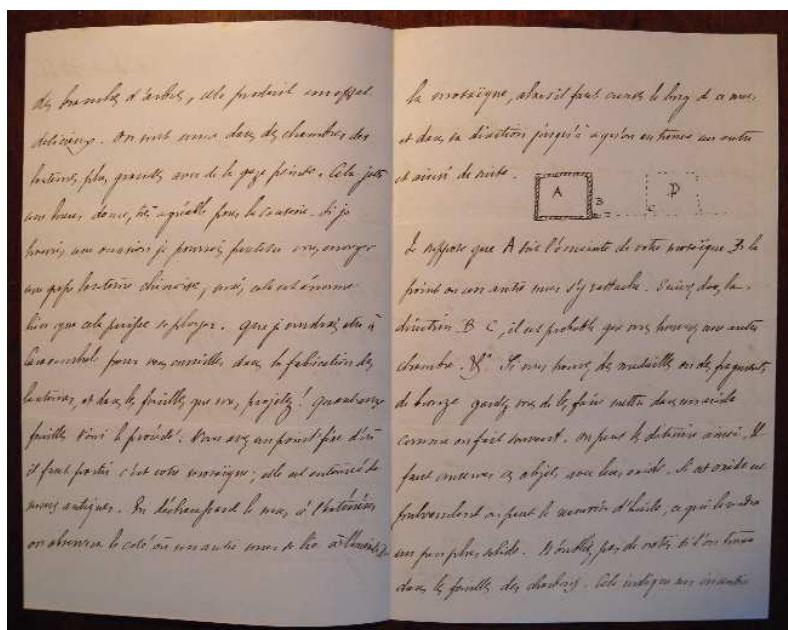 des branches d'arbres, cela produit un effet
délicieux. On met aussi dans des chambres des
lanternes plus grandes avec de la gaze peinte. Cela jette
une lueur douce, très agréable pour la causerie. Si je
trouvais une occasion je pourrais peut-être vous envoyer
une grosse lanterne chinoise, mais cela est énorme
bien que cela puisse se ployer. Que je voudrais être à
pour vous conseiller dans la fabrication des
lanternes, et dans les fouilles que vous projetez! Quant aux
fouilles voici le procédé. Vous avez un point fixe d'où
il faut partir c'est votre mosaïque; elle est entourée de
murs antiques. En déchaussant le mur à l'extérieur
on observera le coté où un autre mur se lie à
la mosaïque, alors il faut creuser le long de ce mur
et dans sa direction jusqu'à ce qu'on en trouve un autre
et ainsi de suite.
A B C D
Je suppose que A soit l'enceinte de votre mosaïque B le
point où un autre mur s'y rattache. Suivez dans la
direction B C, il est probable que vous trouverez une autre
chambre. Si vous trouvez des médailles ou des fragments
de bronze gardez vous de les faire mettre dans un acide
comme on fait souvent. On peut les détruire ainsi. Il
faut conserver ces objets avec leur oxide. Si cet oxide est
pulvérulent on peut le recouvrir d'huile, ce qui le rendra
un peu plus solide. N'oubliez pas de noter si l'on trouve
dans les fouilles des charbons. Cela indique un incendie